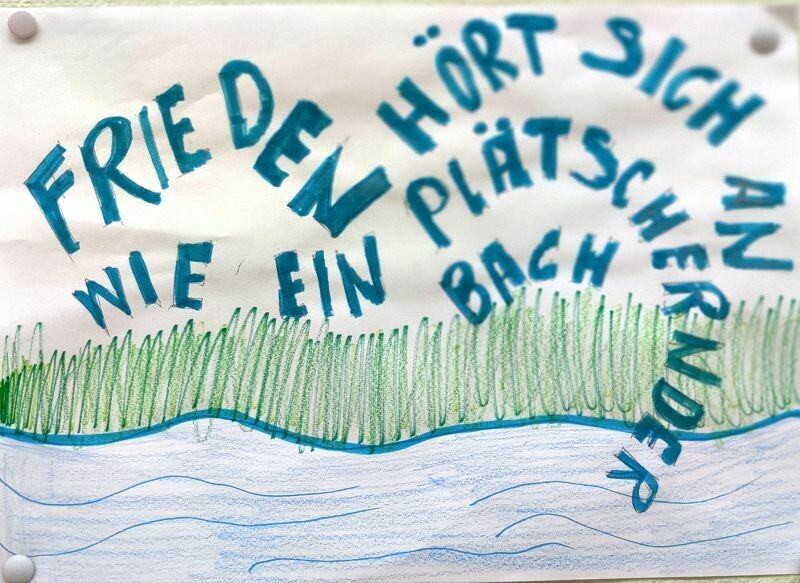 FRIEDEN
HÖRT SICH AN
WIE EIN
PLÄTSCHERNDER
BACH